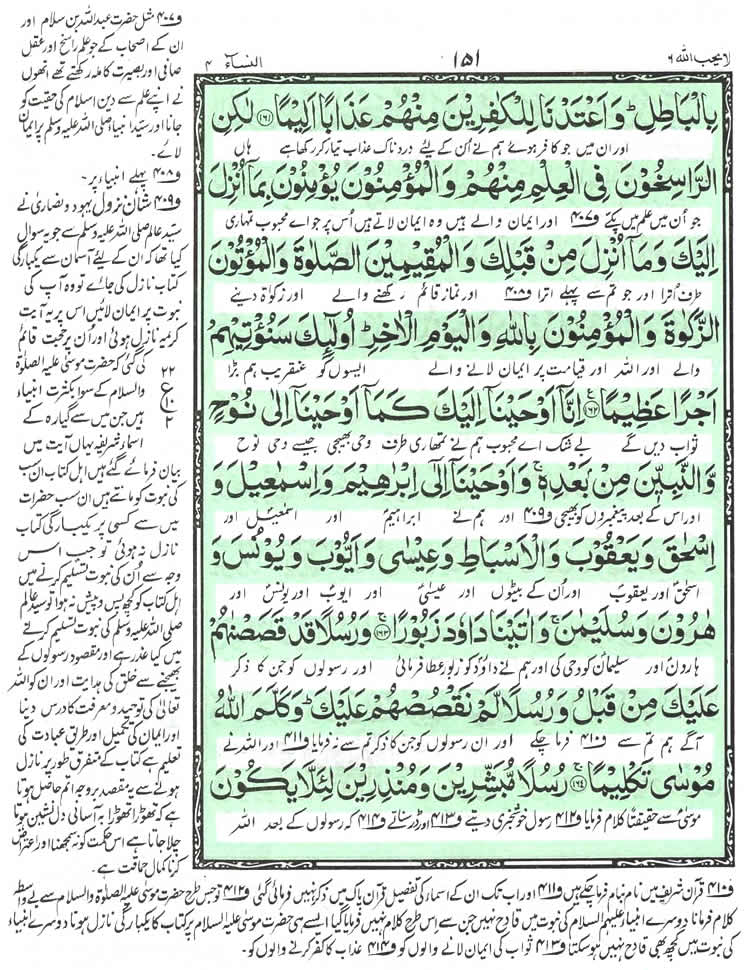 لا یحب اللہ ۶
۱۵۱
النسآء ۴
بِالْبَاطِلِ ؕ وَاَعْتَدْنَا لِلْكٰفِرِیْنَ مِنْهُمْ عَذَابًا اَلِیْمًا ﴿۱۶۱﴾ لٰكِنِ
اور ان میں جو کافر ہوئے ہم نے اُن کے لئے دردناک عذاب تیار کر رکھا ہے ہاں
الرّٰسِخُوْنَ فِی الْعِلْمِ مِنْهُمْ وَالْمُؤْمِنُوْنَ یُؤْمِنُوْنَ بِمَاۤ اُنْزِلَ
جو اُن میں علم میں پکے ف۴۰۷ اور ایمان والے ہیں وہ ایمان لاتے ہیں اُس پر جو اے محبوب تمہاری
اِلَیْكَ وَمَاۤ اُنْزِلَ مِنْ قَبْلِكَ وَالْمُقِیْمِیْنَ الصَّلٰوةَ وَالْمُؤْتُوْنَ
طرف اُترا اور جو تم سے پہلے اترا ف۴۰۸ اور نماز قائم رکھنے والے اور زکوٰۃ دینے
الزَّكٰوةَ وَالْمُؤْمِنُوْنَ بِاللّٰهِ وَالْیَوْمِ الْاٰخِرِ ؕ اُولٰٓىِٕكَ سَنُؤْتِیْهِمْ
والے اور اللہ اور قیامت پر ایمان لانے والے ایسوں کو عنقریب ہم بڑا
اَجْرًا عَظِیْمًا ﴿۱۶۲﴾ اِنَّاۤ اَوْحَیْنَاۤ اِلَیْكَ كَمَاۤ اَوْحَیْنَاۤ اِلٰی نُوْحٍ
ثواب دیں گے بے شک اے محبوب ہم نے تمھاری طرف وحی بھیجی جیسے وحی نوح
وَّالنَّبِیّٖنَ مِنْۢ بَعْدِهٖ ۚ وَاَوْحَیْنَاۤ اِلٰۤی اِبْرٰهِیْمَ وَاِسْمٰعِیْلَ وَ
اور اس کے بعد پیغمبروں کو بھیجی ف۴۰۹ اور ہم نے ابراہیم اور اسمٰعیل اور
اِسْحٰقَ وَیَعْقُوْبَ وَالْاَسْبَاطِ وَعِیْسٰی وَاَیُّوْبَ وَیُوْنُسَ وَ
اسحٰق اور یعقوب اور اُن کے بیٹوں اور عیسیٰ اور ایوب اور یونس اور
هٰرُوْنَ وَسُلَیْمٰنَ ۚ وَاٰتَیْنَا دَاوٗدَ زَبُوْرًا ﴿۱۶۳﴾ وَرُسُلًا قَدْ قَصَصْنٰهُمْ
ہارون اور سلیمان کو وحی کی اور ہم نے داؤد کو زبور عطا فرمائی اور رسولوں کو جن کا ذکر
عَلَیْكَ مِنْ قَبْلُ وَرُسُلًا لَّمْ نَقْصُصْهُمْ عَلَیْكَ ؕ وَكَلَّمَ اللّٰهُ
آگے ہم تم سے ف۴۱۰ فرما چکے اور ان رسولوں کو جن کا ذکر تم سے نہ فرمایا ف۴۱۱ اور اللہ نے
مُوْسٰی تَكْلِیْمًا ﴿۱۶۴﴾ رُسُلًا مُّبَشِّرِیْنَ وَمُنْذِرِیْنَ لِئَلَّا یَكُوْنَ
موسیٰ سے حقیقتًا کلام فرمایا ف۴۱۲ رسول خوشخبری دیتے ف۴۱۳ اور ڈر سناتے ف۴۱۴ کہ رسولوں کے بعد اللہ
ف۴۰۷ مثل حضرت عبداللہ بن سلام اور
ان کے اصحاب کے جو علم راسخ اور عقل
صافی اور بصیرت کاملہ رکھتے تھے انھوں
نے اپنے علم سے دین اسلام کی حقیت کو
جانا اور سید انبیاء صلی اللہ علیہ وسلم پر ایمان
لائے۔
ف۴۰۸ پہلے انبیاء پر۔
ف۴۰۹ شان نزول یہود و نصاریٰ نے
سید عالم صلی اللہ علیہ وسلم سے جو یہ سوال
کیا تھا کہ ان کے لئے آسمان سے یکبارگی
کتاب نازل کی جائے تو وہ آپ کی
نبوت پر ایمان لائیں اس پر یہ آیت
کریمہ نازل ہوئی اور اُن پر حجت قائم
کی گئی کہ حضرت موسیٰ علیہ الصلوٰۃ
والسلام کے سوا بکثرت انبیاء
ہیں جن میں سے گیارہ کے
اسماء شریفہ یہاں آیت میں
بیان فرمائے گئے ہیں اہل کتاب ان سب
کی نبوت کو مانتے ہیں ان سب حضرات
میں سے کسی پر یکبارگی کتاب
نازل نہ ہوئی تو جب اس
وجہ سے اُن کی نبوت تسلیم کرنے میں
اہل کتاب کو کچھ پس و پیش نہ ہوا تو سید عالم
صلی اللہ علیہ وسلم کی نبوت تسلیم کرنے
میں کیا عذر ہے اور مقصود رسولوں کے
بھیجنے سے خلق کی ہدایت اور ان کو اللہ
تعالیٰ کی توحید و معرفت کا درس دینا
اور ایمان کی تکمیل اور طرق عبادت کی
تعلیم ہے کتاب کے متفرق طور پر نازل
ہونے سے یہ مقصد بروجہ اتم حاصل ہوتا
ہے کہ تھوڑا تھوڑا بہ آسانی دل نشین ہوتا
چلا جاتا ہے اس حکمت کو نہ سمجھنا اور اعتراض
کرنا کمال حماقت ہے۔
۲۲
ع
۲
ف۴۱۰ قرآن شریف میں نام بنام فرما چکے ہیں ف۴۱۱ اور اب تک ان کے اسماء کی تفصیل قرآن پاک میں ذکر نہیں فرمائی گئی ف۴۱۲ تو جس طرح حضرت موسیٰ علیہ الصلوٰۃ والسلام سے بے واسطہ
کلام فرمانا دوسرے انبیاء علیہم السلام کی نبوت میں قادح نہیں جن سے اس طرح کلام نہیں فرمایا گیا ایسے ہی حضرت موسیٰ علیہ السلام پر کتاب کا یکبارگی نازل ہونا دوسرے انبیاء
کی نبوت میں کچھ بھی قادح نہیں ہوسکتا ف۴۱۳ ثواب کی ایمان لانے والوں کو ف۴۱۴ عذاب کا کفر کرنے والوں کو۔